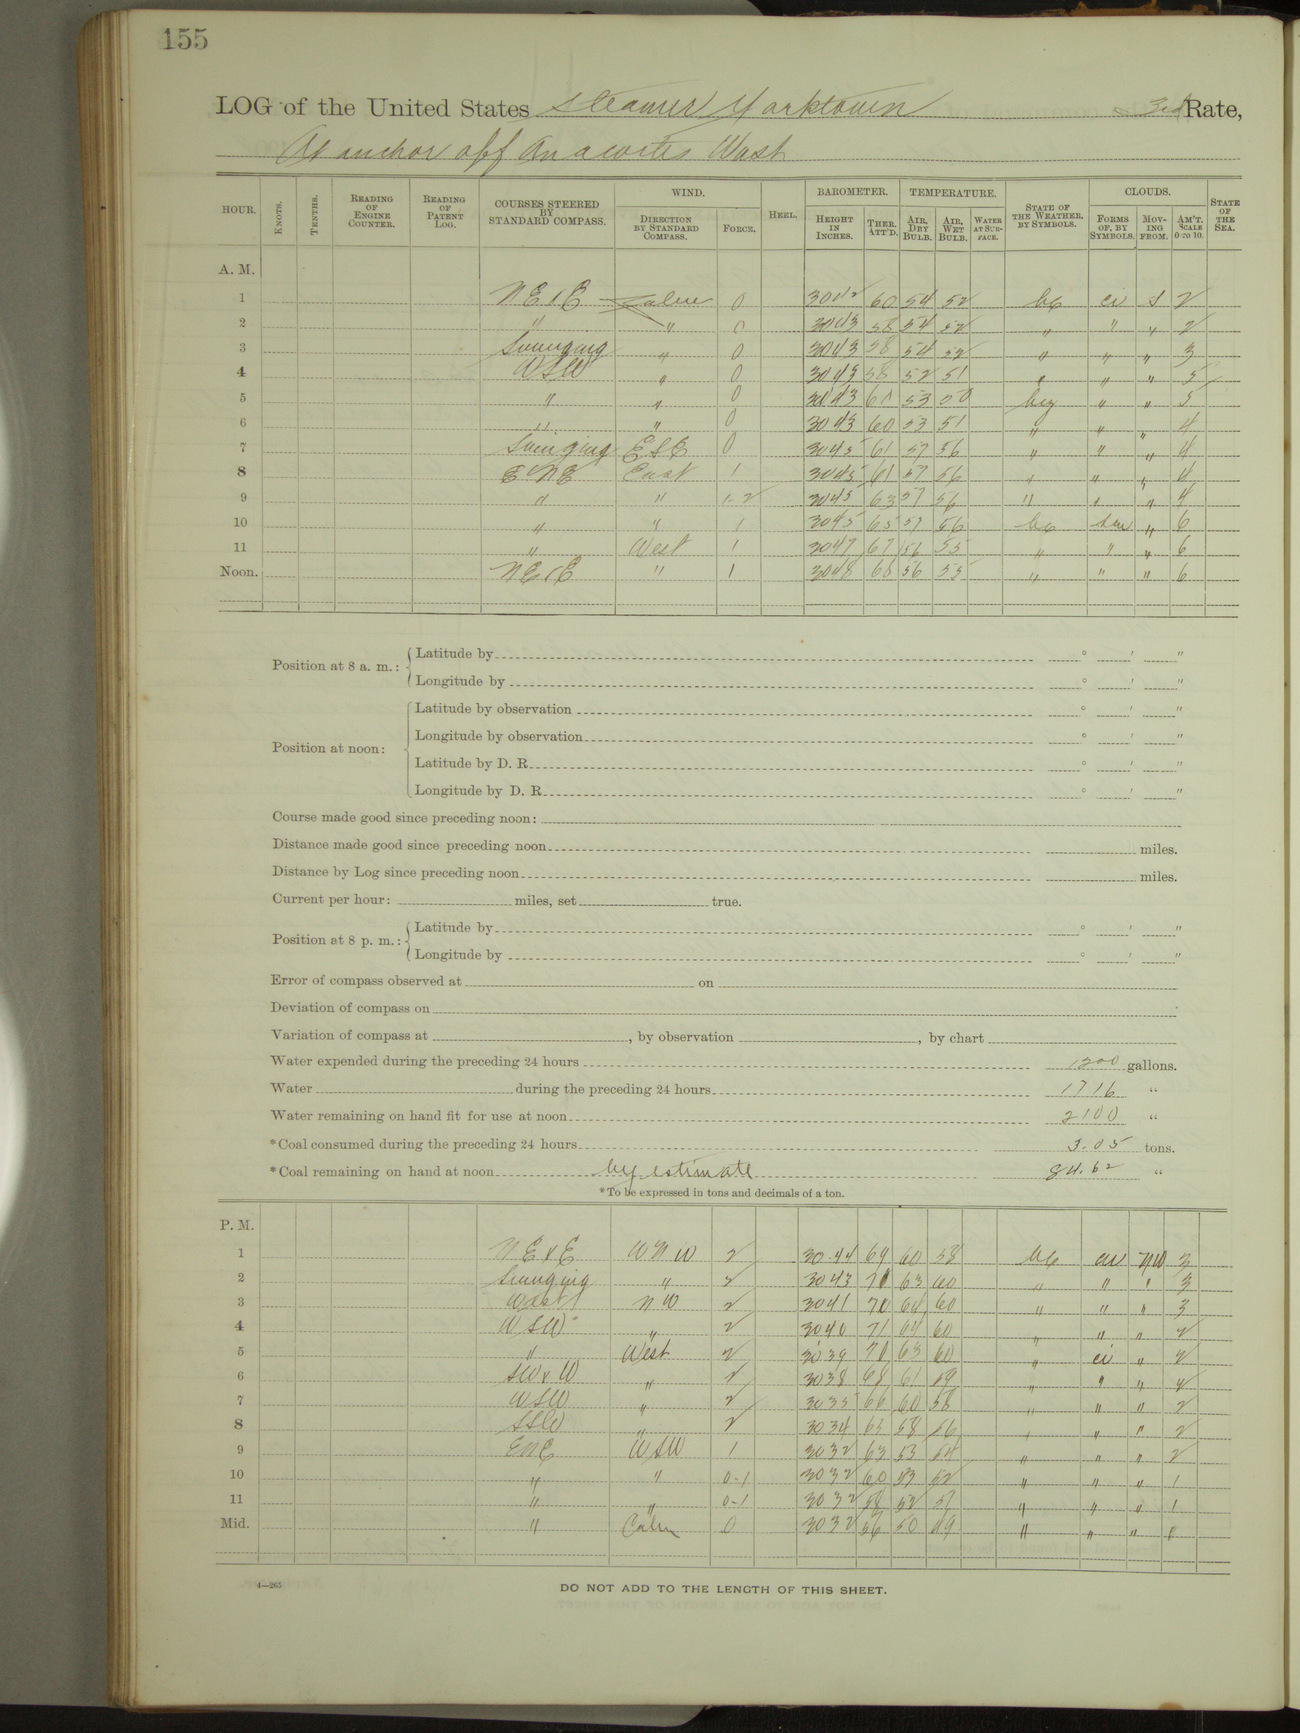 155
LOG of the United States Steamer Yorktown 3rd Rate,
At anchor off Anacortes Wash
HOUR. KNOTS. TENTHS. READING OF ENGINE COUNTER. READING OF PATENT LOG. COURSES STEERED BY STANDARD COMPASS. WIND. DIRECTION BY STANDARD COMPASS. FORCE. HEEL. BAROMETER. HEIGHT IN INCHES. THER. ATT'D. TEMPERATURE. AIR, DRY BULB. AIR, WET BULB. WATER AT SURFACE. STATE OF THE WEATHER, BY SYMBOLS. CLOUDS. FORMS OF, BY SYMBOLS. MOVING FROM. AM'T. SCALE 0 TO 10. STATE OF THE SEA.
A. M.
1 NExE Calm 0 3042 60 54 52 bc ci S 2
2 " " 0 3043 58 54 52 " " " 2
3 Swinging " 0 3043 58 54 52 " " " 3
4 WSW " 0 3043 58 52 51 " " " 5
5 " " 0 3043 61 53 50 " " 5
6 " " 0 3043 60 53 51 " " " 4
7 Swinging ESE 0 3045 61 57 56 " " " 4
8 ENE East 1 3045 61 57 56 " " " 4
9 " " 1-2 3045 63 57 56 " " " 4
10 " " 1 3045 65 57 56 bc " 6
11 " West 1 3047 67 56 55 " " " 6
Noon. NExE " 1 3048 68 56 55 " " " 6
Position at 8 a. m.: Latitude by ° ' "
Longitude by ° ' "
Position at noon: Latitude by observation ° ' "
Longitude by observation ° ' "
Latitude by D. R. ° ' "
Longitude by D. R. ° ' "
Course made good since preceding noon:
Distance made good since preceding noon miles.
Distance by Log since preceding noon miles.
Current per hour: miles, set true.
Position at 8 p. m.: Latitude by ° ' "
Longitude by ° ' "
Error of compass observed at on
Deviation of compass on
Variation of compass at , by observation , by chart
Water expended during the preceding 24 hours 1200 gallons.
Water during the preceding 24 hours 1716 "
Water remaining on hand fit for use at noon 2100 "
*Coal consumed during the preceding 24 hours 3.05 tons.
*Coal remaining on hand at noon by estimate 84.62 "
*To be expressed in tons and decimals of a ton.
P. M.
1 NExE WNW 2 30.44 69 60 58 bc cu NW 3
2 Swinging " 2 3043 70 63 60 " " " 3
3 West NW 2 3041 70 64 60 " " " 3
4 WSW " 2 3040 71 64 60 " " " 2
5 " West 2 3039 70 63 60 " ci " 2
6 SWxW " 2 3038 68 61 59 " " " 2
7 WSW " 2 3035 66 60 58 " " " 2
8 SSW " 2 3034 65 58 56 " " " 2
9 ENE WSW 1 3032 63 53 54 " " " 2
10 " " 0-1 3032 60 53 52 " " " 1
11 " " 0-1 3032 58 52 51 " " " 1
Mid. " Calm 0 3032 56 50 49 " " "
4—265
DO NOT ADD TO THE LENGTH OF THIS SHEET.